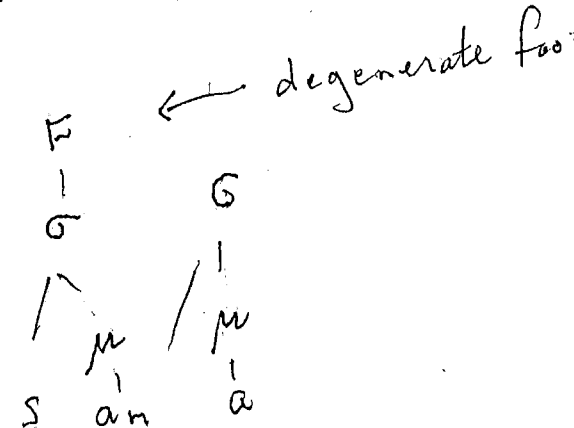 degenerate foo
F
σ σ
μ μ
s am a